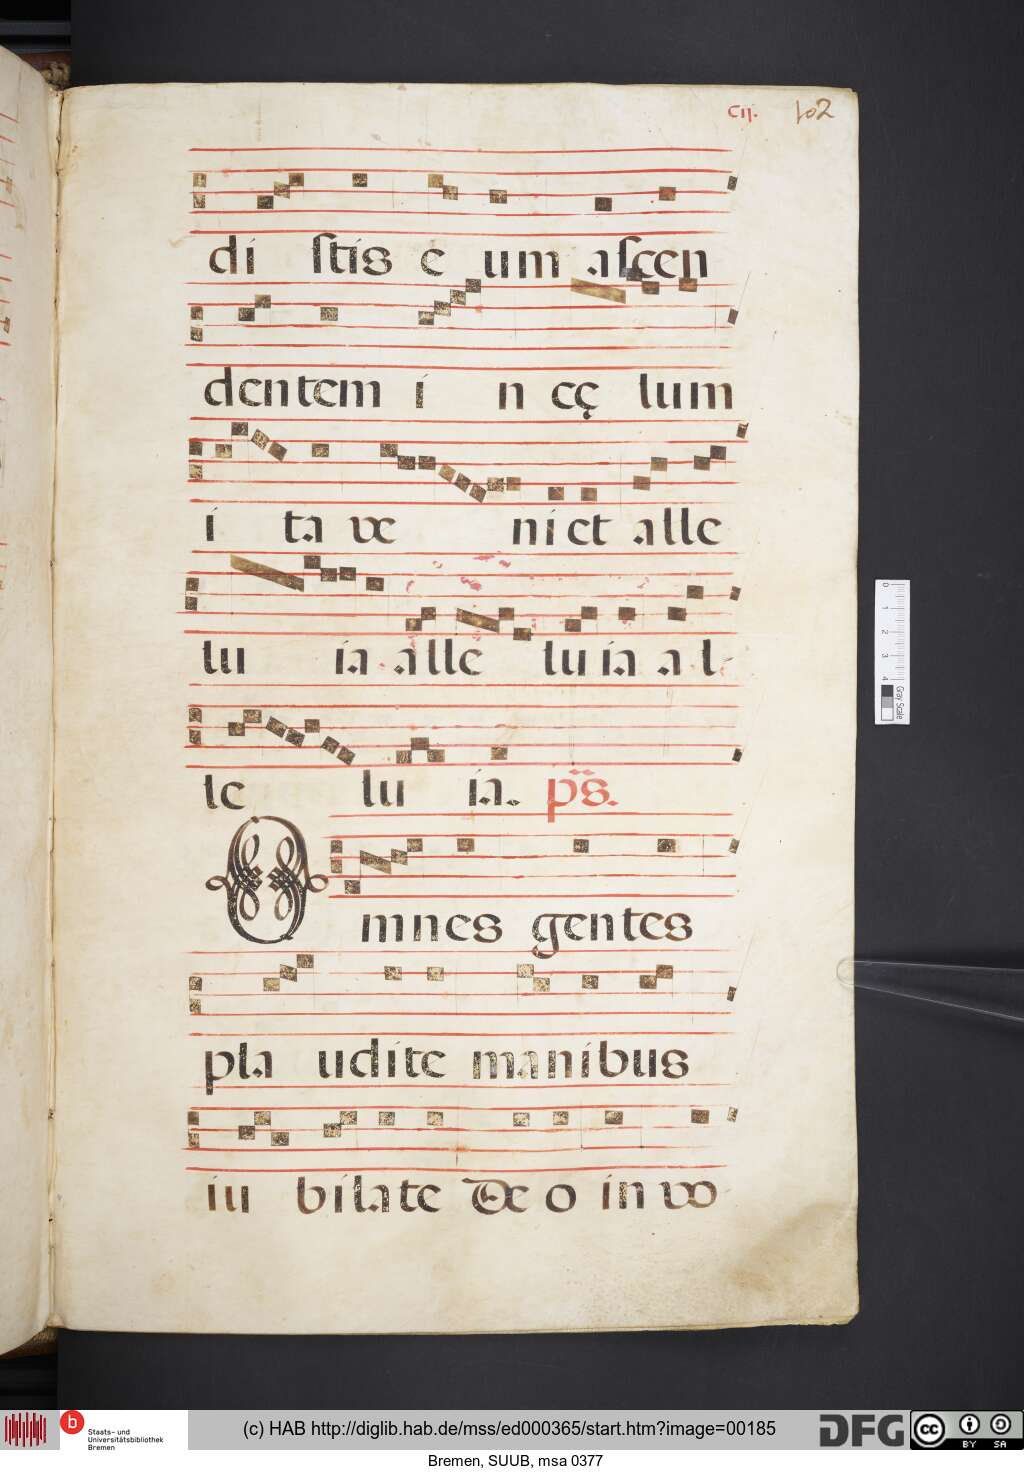 CII. 102
di stis e um ascen
dentem i n cę lum
i ta ve ni et alle
lu ia alle lu ia al
le lu ia. ps.
Omnes gentes
pla udite manibus
iu bilate De o in vo
0 1 2 3 4
Gray Scale
b Staats- und
Universitätsbibliothek
Bremen
(c) HAB http://diglib.hab.de/mss/ed000365/start.htm?image=00185
DFG
cc BY SA
Bremen, SUUB, msa 0377